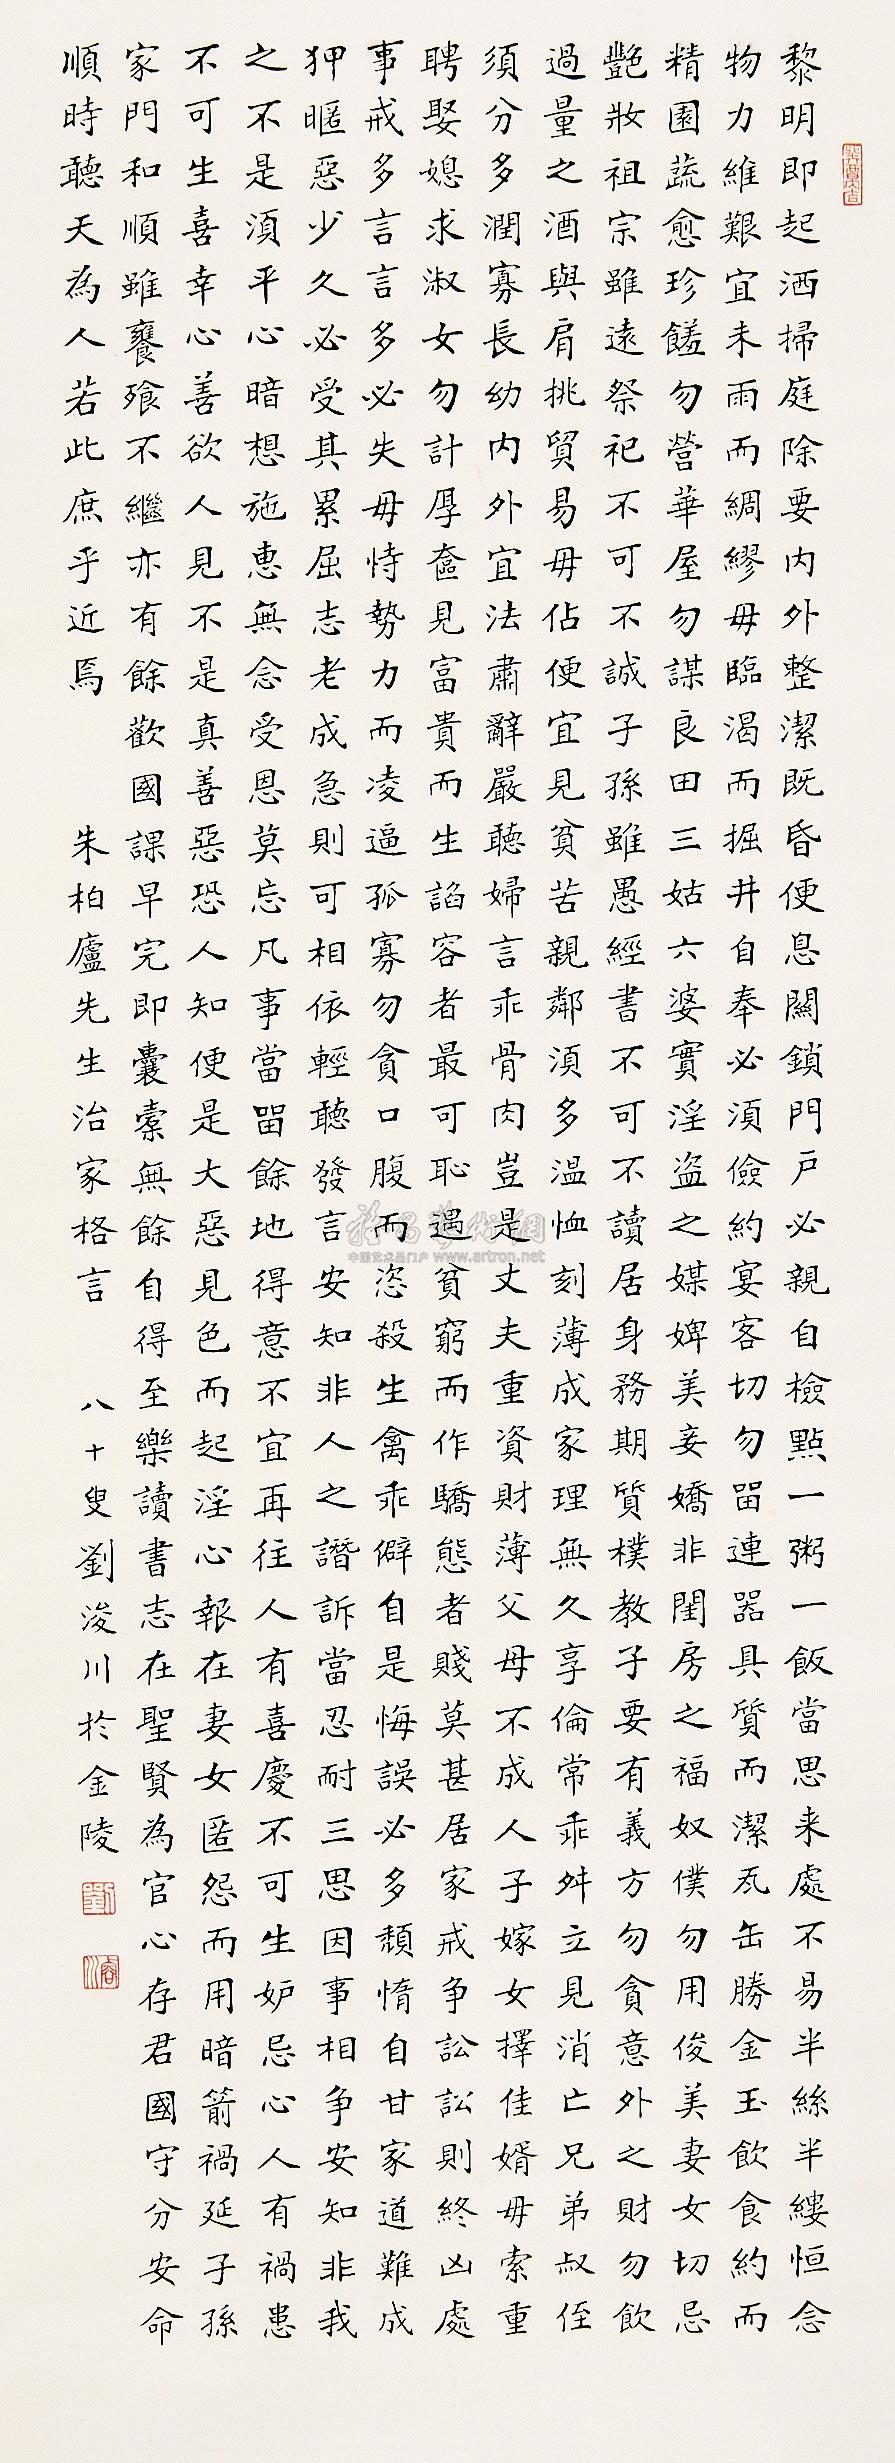 黎明即起洒掃庭除要内外整潔既昏便息關鎖門户必親自檢點一粥一飯當思来處不易半絲半縷恒念
物力維艱宜未雨而綢繆毋臨渴而掘井自奉必須儉約宴客切勿畱連器具質而潔瓦缶勝金玉飲食約而
精園蔬愈珍饈勿營華屋勿謀良田三姑六婆實淫盗之媒婢美妾嬌非閨房之福奴僕勿用俊美妻女切忌
艷妝祖宗雖遠祭祀不可不誠子孫雖愚經書不可不讀居身務期質樸教子要有義方勿貪意外之財勿飲
過量之酒與肩挑貿易毋佔便宜見貧苦親鄰須多温恤刻薄成家理無久享倫常乖舛立見消亡兄弟叔侄
須分多潤寡長幼内外宜法肅辭嚴聽婦言乖骨肉豈是丈夫重資財薄父母不成人子嫁女擇佳婿毋索重
聘娶媳求淑女勿計厚奩見富貴而生諂容者最可恥遇貧窮而作驕態者賤莫甚居家戒争訟訟則終凶處
事戒多言言多必失毋恃勢力而凌逼孤寡勿貪口腹而恣殺生禽乖僻自是悔誤必多頹惰自甘家道難成
狎暱惡少久必受其累屈志老成急則可相依輕聽發言安知非人之譖訴當忍耐三思因事相争安知非我
之不是須平心暗想施惠無念受恩莫忘凡事當畱餘地得意不宜再往人有喜慶不可生妒忌心人有禍患
不可生喜幸心善欲人見不是真善惡恐人知便是大惡見色而起淫心報在妻女匿怨而用暗箭禍延子孫
家門和順雖饔飱不繼亦有餘歡國課早完即囊橐無餘自得至樂讀書志在聖賢為官心存君國守分安命
順時聽天為人若此庶乎近焉 朱柏廬先生治家格言 八十叟劉浚川於金陵
劉
浚川
雅昌艺术網
中国艺术品门户 www.artron.net